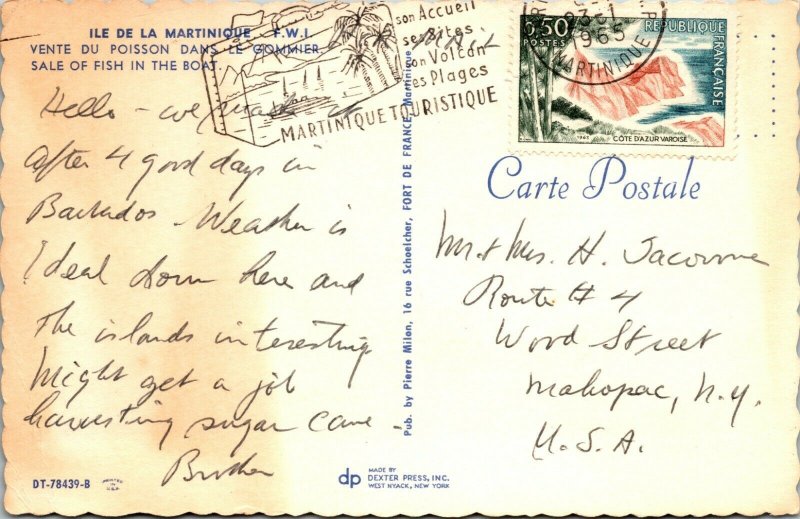 ILE DE LA MARTINIQUE - F.W.I.
VENTE DU POISSON DANS LE GOMMIER
SALE OF FISH IN THE BOAT.
son Accueil
ses Sites
son Volcan
ses Plages
MARTINIQUE TOURISTIQUE
1965
MARTINIQUE
0,50
POSTES
REPUBLIQUE FRANÇAISE
1963
CÔTE D'AZUR VAROISE
Carte Postale
Hello we
after 4 good days in
Barbados - Weather is
Ideal down here and
the islands interesting
Might get a job
harvesting sugar cane -
Brother
Mr + Mrs. H.
Route # 4
Wood Street
Mahopac, N.Y.
U.S.A.
Pub. by Pierre Milon, 16 rue Schoelcher, FORT DE FRANCE, Martinique
DT-78439-B
PRINTED IN U.S.A.
dp
MADE BY
DEXTER PRESS, INC.
WEST NYACK, NEW YORK